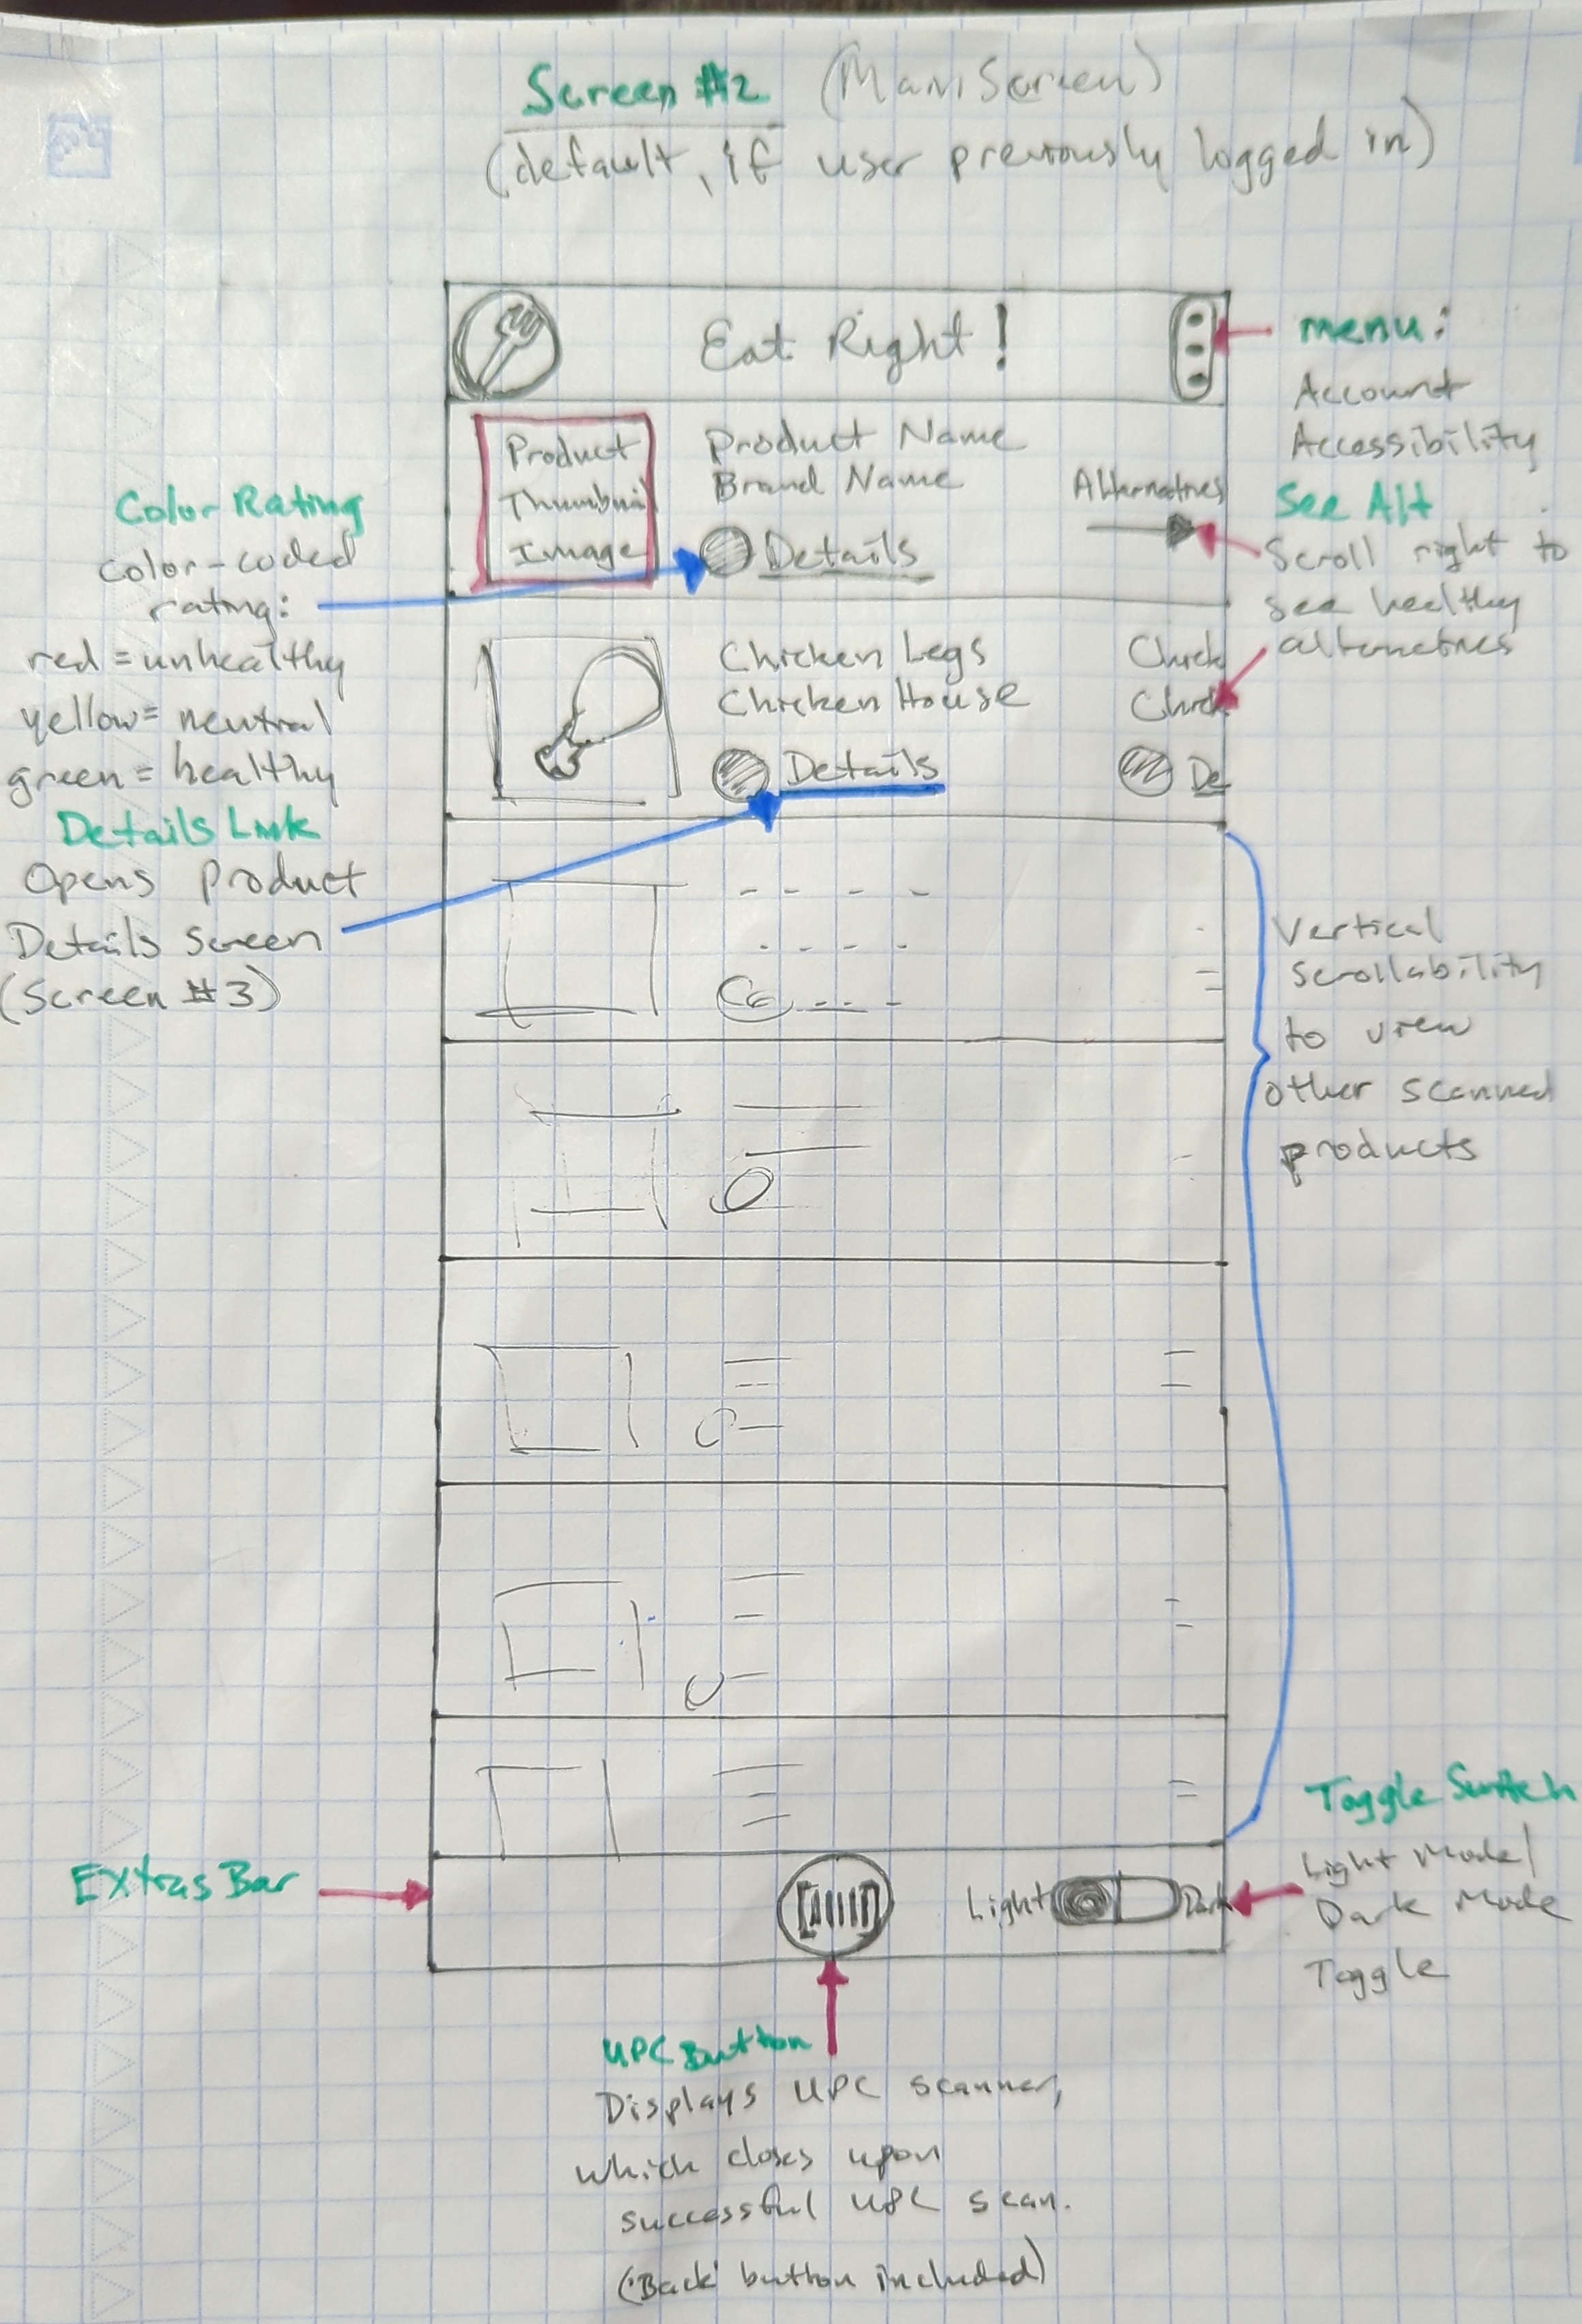 Screen #2 (Main Screen)
(default, if user previously logged in)
Eat Right!
menu:
Account
Accessibility
Product
Thumbnail
Image
Product Name
Brand Name
Details
Alternatives
See Alt
Scroll right to
see healthy
alternatives
Color Rating
color-coded
rating:
red = unhealthy
yellow = neutral
green = healthy
Details Link
Opens product
Details screen
(Screen #3)
Chicken Legs
Chicken House
Details
Chick
Chick
De
Vertical
scrollability
to view
other scanned
products
Extras Bar
Light
Dark
Toggle Switch
Light Mode/
Dark Mode
Toggle
UPC Button
Displays UPC scanner,
which closes upon
successful UPC scan.
('Back' button included)